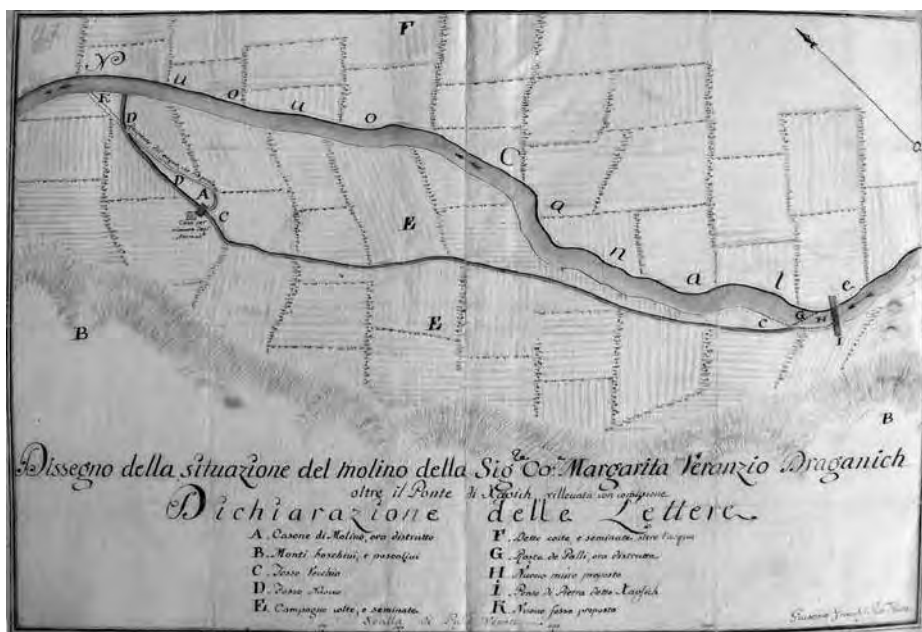 N u o u o C a n a l e
F
K
D
D
A
C
E
E
C
G
H
I
B
B
Dissegno della situazione del molino della Sig.ra Co: Margarita Veranzio Draganich
oltre il Ponte di Xapsich rillevata con
Dichiarazione delle Lettere
A. Casone di Molino, ora distrutto
B. Monti boschivi, e pascolivi
C. Fosso Vecchio
D. Fosso Nuovo
E. Campagne colte, e seminate
F. Dette colte, e seminate oltre l'acqua
G. Posta de Palli, ora distrutta
H. Nuovo muro proposto
I. Ponte di Pietra detto Xapsich
K. Nuovo fosso proposto
Scalla di